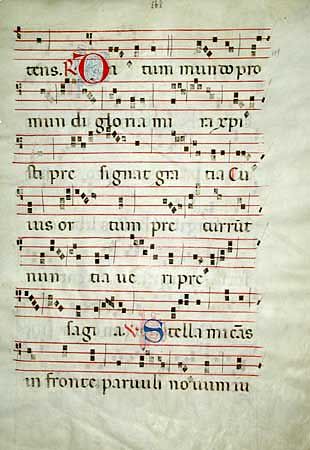 tens. R Da tum mundo pro
mun di gloria mi ri xpi
sti pre signat gra tia Cu
ius or tum pre currũt
nun tia ve ri pre
sagi a V Stella micãs
in fronte parvuli novum iu